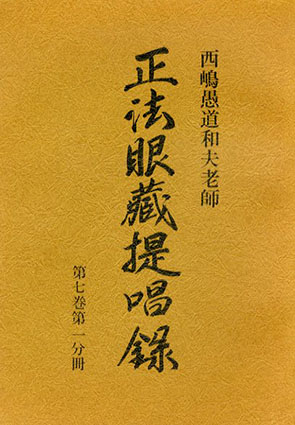 西嶋愚道和夫老師
正法眼藏提唱録
第七巻第一分冊